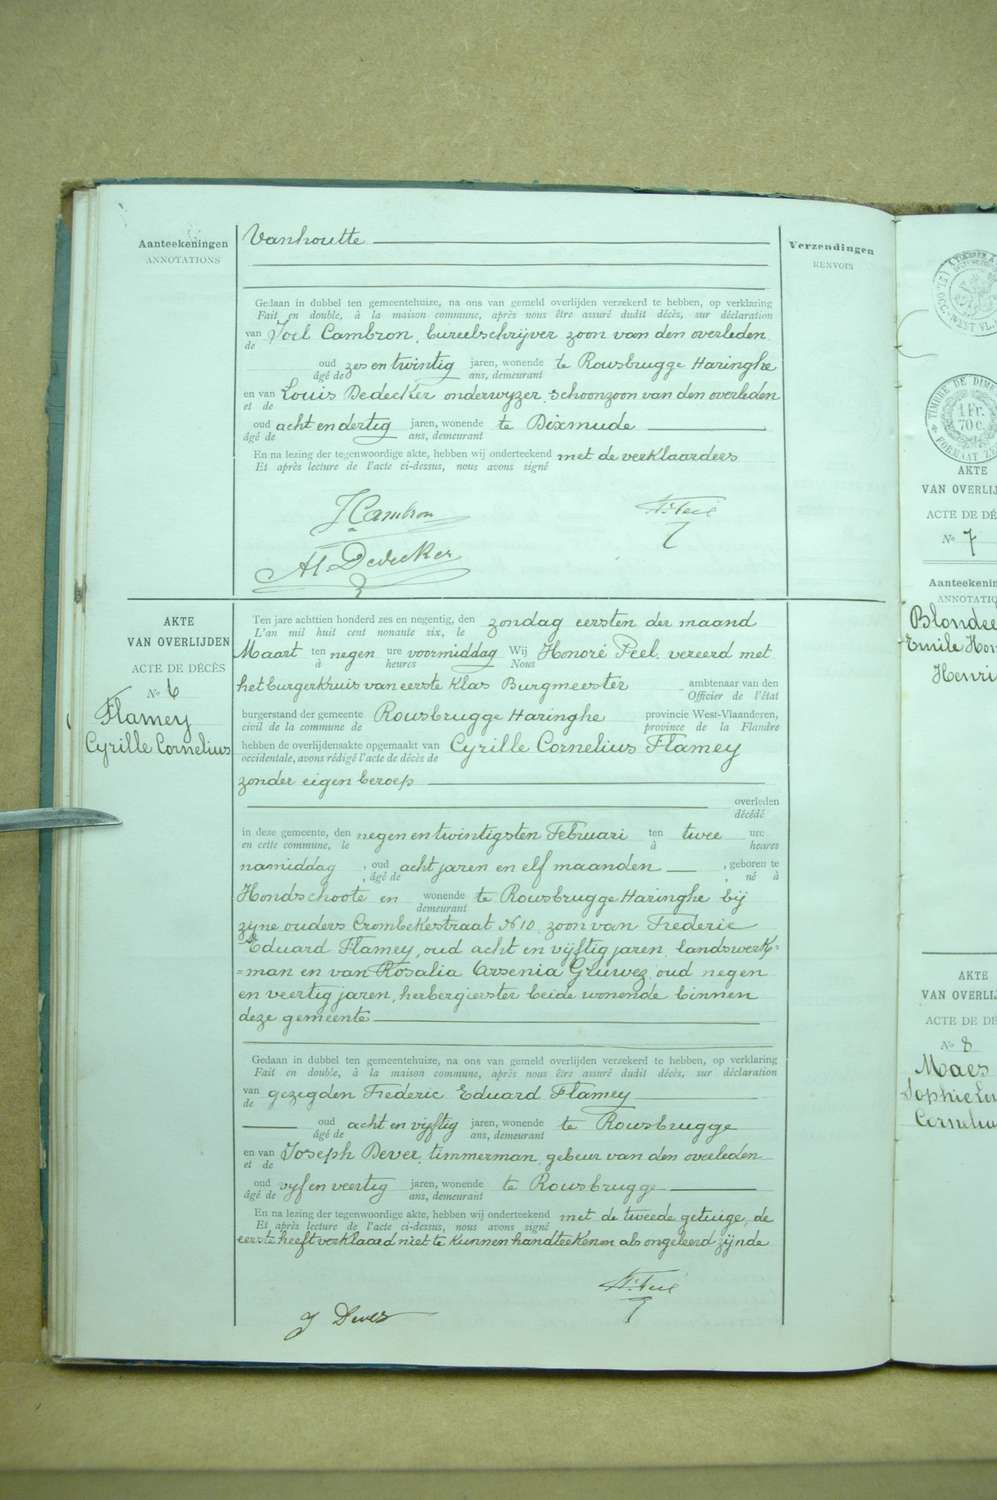 Aanteekeningen
ANNOTATIONS
Vanhoutte
Verzendingen
RENVOIS
Gedaan in dubbel ten gemeentehuize, na ons van gemeld overlijden verzekerd te hebben, op verklaring
Fait en double, à la maison commune, après nous être assuré dudit décès, sur déclaration
van Joël Cambron, bureelschrijver zoon van den overleden
de
oud zes en twintig jaren, wonende te Rousbrugge Haringhe
âgé de ans, demeurant
en van Louis Dedecker onderwyzer, schoonzoon van den overleden
et de
oud acht en dertig jaren, wonende te Dixmude
âgé de ans, demeurant
En na lezing der tegenwoordige akte, hebben wij onderteekend met de verklaarders
Et après lecture de l'acte ci-dessus, nous avons signé
J Cambron
H. Peel
Al. Dedecker
AKTE
VAN OVERLIJDEN
ACTE DE DÉCÈS
No 6
Flamey
Cyrille Cornelius
Ten jare achttien honderd zes en negentig, den zondag eersten der maand
L'an mil huit cent nonante six, le
Maart ten negen ure voormiddag Wij Honoré Peel, vereerd met
à heures Nous
het burgerkruis van eerste klas Burgmeester ambtenaar van den
Officier de l'état
burgerstand der gemeente Rousbrugge Haringhe provincie West-Vlaanderen,
civil de la commune de province de la Flandre
hebben de overlijdensakte opgemaakt van Cyrille Cornelius Flamey
occidentale, avons rédigé l'acte de décès de
zonder eigen beroep
overleden
décédé
in deze gemeente, den negen en twintigsten Februari ten twee ure
en cette commune, le à heures
namiddag, oud acht jaren en elf maanden, geboren te
, âgé de , né à
Hondschoote en wonende te Rousbrugge Haringhe bij
demeurant
zyne ouders Crombekestraat N 10, zoon van Frederic
Eduard Flamey, oud acht en vijftig jaren, landswerk=
=man en van Rosalia Arsenia Gruwez, oud negen
en veertig jaren, herbergierster beide wonende binnen
deze gemeente
Gedaan in dubbel ten gemeentehuize, na ons van gemeld overlijden verzekerd te hebben, op verklaring
Fait en double, à la maison commune, après nous être assuré dudit décès, sur déclaration
van gezegden Frederic Eduard Flamey
de
oud acht en vijftig jaren, wonende te Rousbrugge
âgé de ans, demeurant
en van Joseph Dever, timmerman, gebeur van den overleden
et de
oud vyf en veertig jaren, wonende te Rousbrugge
âgé de ans, demeurant
En na lezing der tegenwoordige akte, hebben wij onderteekend met de tweede getuige, de
Et après lecture de l'acte ci-dessus, nous avons signé
eerste heeft verklaard niet te kunnen handteekenen als ongeleerd zijnde
H. Peel
J Dever
TIMBRE DE DIME
1 Fr.
70 c.
AKTE
VAN OVERLIJ
ACTE DE DÉ
No 7
Aanteekenin
ANNOTATIO
Blondee
Emile Hon
Henri
AKTE
VAN OVERLIJ
ACTE DE DÉ
No 8
Maes
Sophie Lu
Corneliu